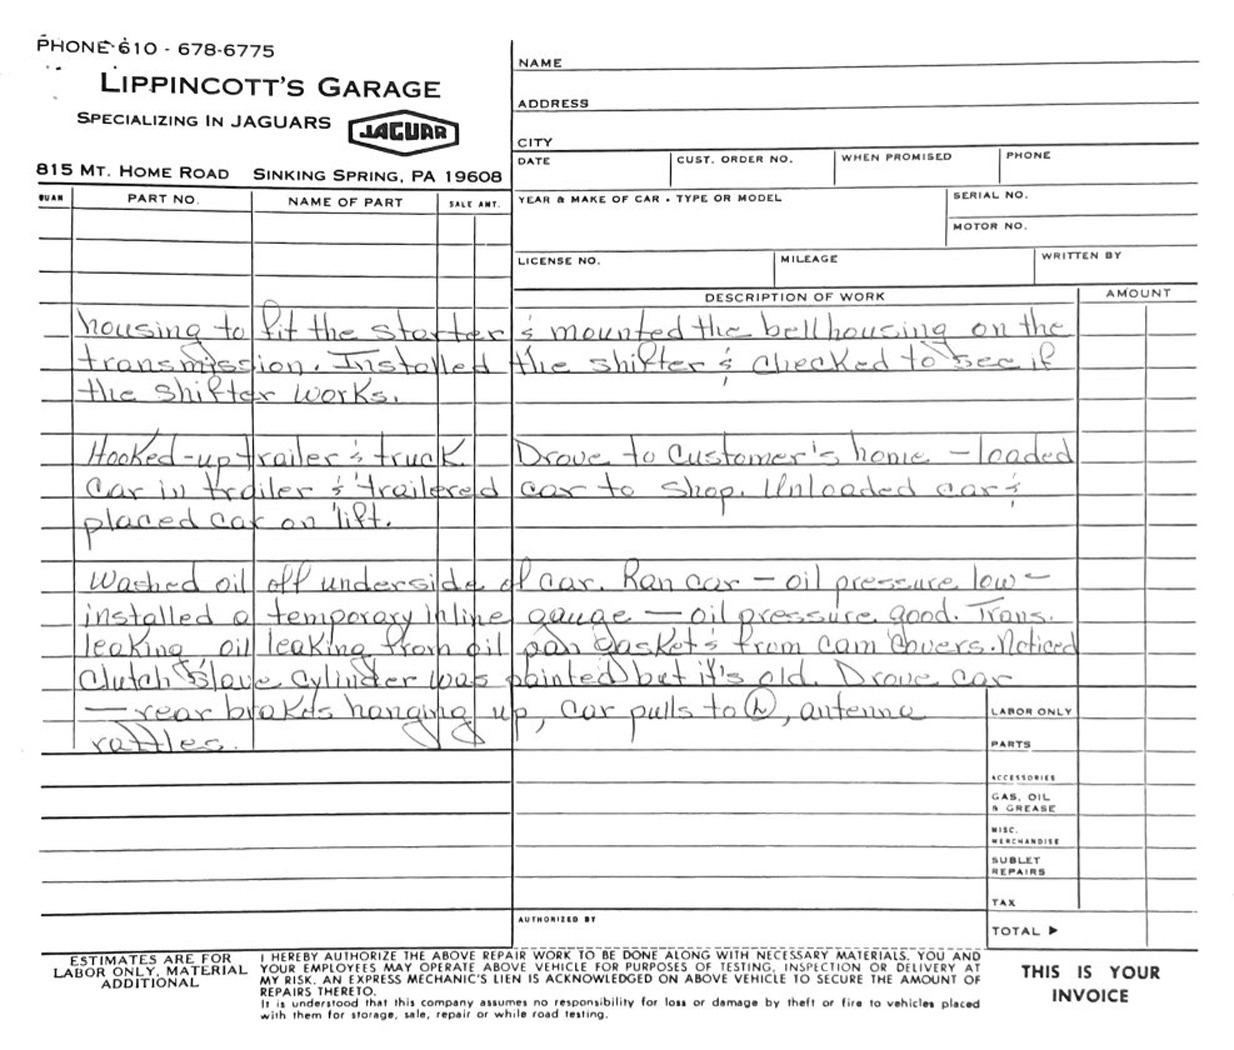 PHONE 610 - 678-6775
LIPPINCOTT'S GARAGE
SPECIALIZING IN JAGUARS
JAGUAR
815 MT. HOME ROAD SINKING SPRING, PA 19608
NAME
ADDRESS
CITY
DATE CUST. ORDER NO. WHEN PROMISED PHONE
QUAN PART NO. NAME OF PART SALE AMT.
YEAR & MAKE OF CAR - TYPE OR MODEL SERIAL NO.
MOTOR NO.
LICENSE NO. MILEAGE WRITTEN BY
DESCRIPTION OF WORK AMOUNT
housing to fit the starter & mounted the bellhousing on the
transmission. Installed the shifter & checked to see if
the shifter works.
Hooked-up trailer & truck. Drove to customer's home - loaded
car in trailer & trailered car to shop. Unloaded car &
placed car on lift.
Washed oil off underside of car. Ran car - oil pressure low -
installed a temporary inline gauge - oil pressure good. Trans.
leaking oil leaking from oil pan gasket & from cam covers. Noticed
Clutch Slave Cylinder was painted but it's old. Drove car
- rear brakes hanging up, car pulls to (L), antenna
rattles.
LABOR ONLY
PARTS
ACCESSORIES
GAS, OIL
& GREASE
MISC.
MERCHANDISE
SUBLET
REPAIRS
TAX
AUTHORIZED BY
TOTAL ►
ESTIMATES ARE FOR
LABOR ONLY, MATERIAL
ADDITIONAL
I HEREBY AUTHORIZE THE ABOVE REPAIR WORK TO BE DONE ALONG WITH NECESSARY MATERIALS. YOU AND
YOUR EMPLOYEES MAY OPERATE ABOVE VEHICLE FOR PURPOSES OF TESTING, INSPECTION OR DELIVERY AT
MY RISK. AN EXPRESS MECHANIC'S LIEN IS ACKNOWLEDGED ON ABOVE VEHICLE TO SECURE THE AMOUNT OF
REPAIRS THERETO.
It is understood that this company assumes no responsibility for loss or damage by theft or fire to vehicles placed
with them for storage, sale, repair or while road testing.
THIS IS YOUR
INVOICE